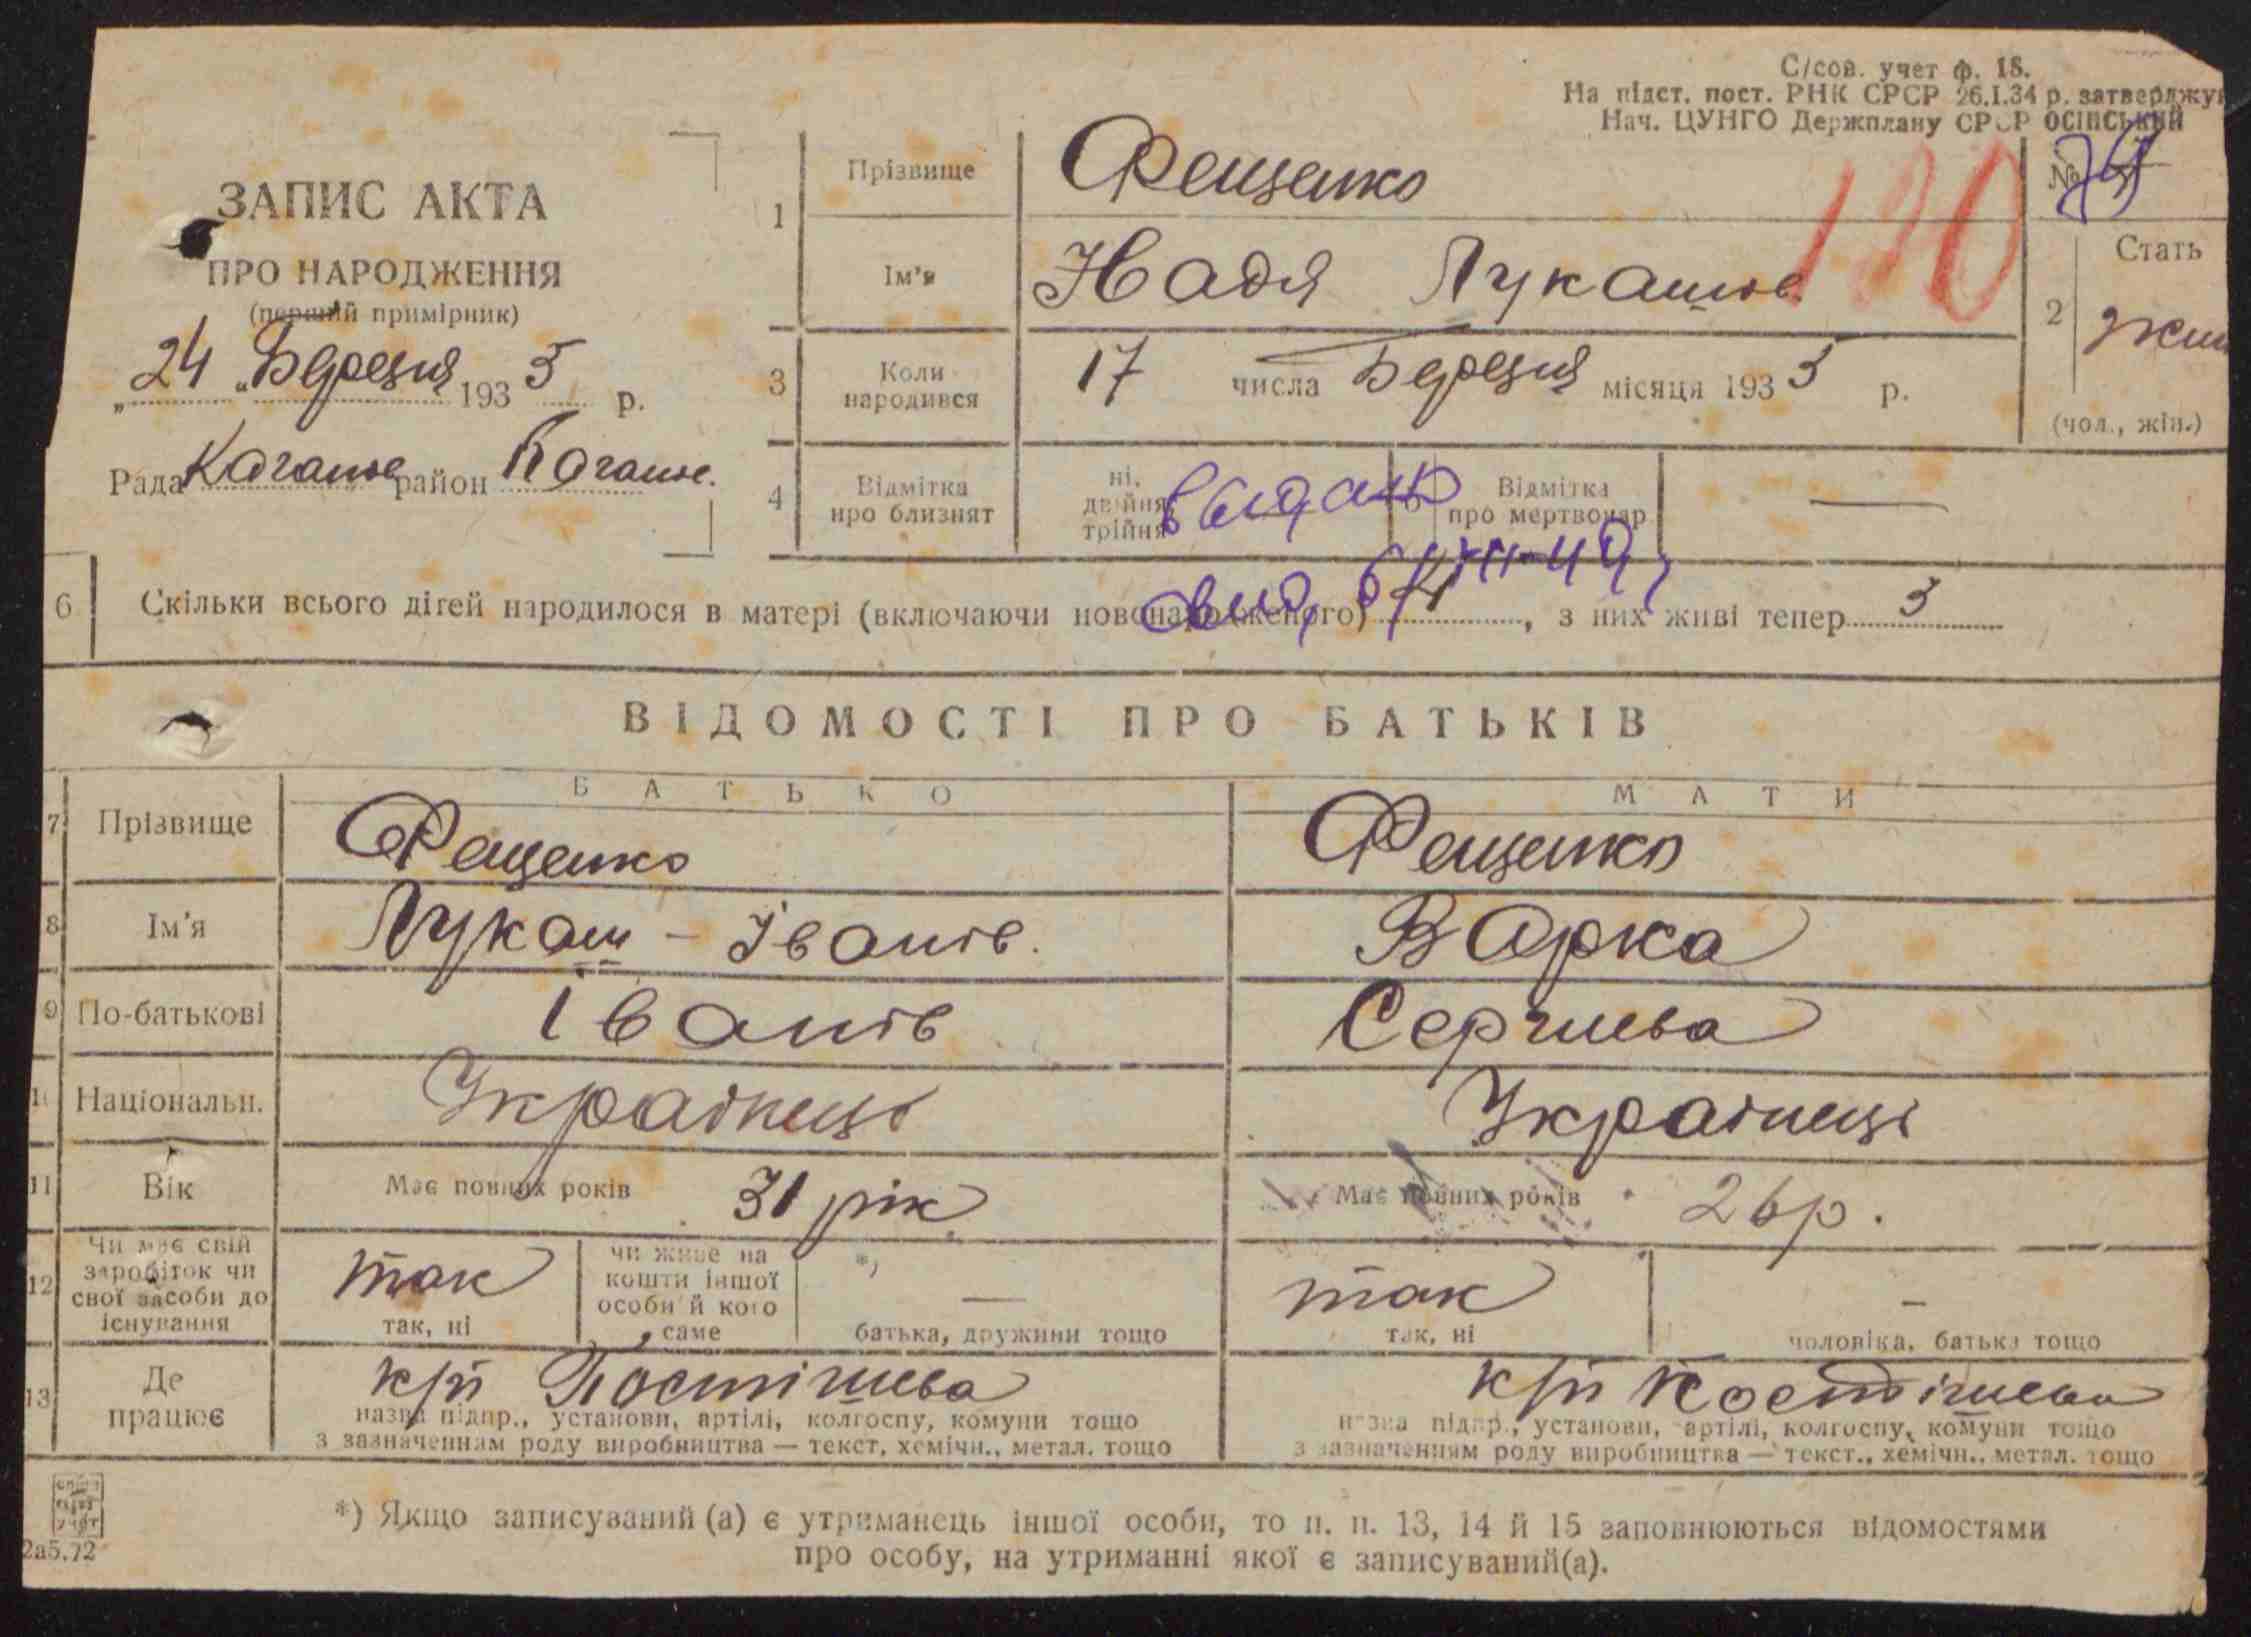 С/сов. учет ф. 18.
На підст. пост. РНК СРСР 26.I.34 р. затверджу
Нач. ЦУНГО Держплану СРСР ОСІНСЬКИЙ
ЗАПИС АКТА
ПРО НАРОДЖЕННЯ
(перший примірник)
„24" Березня 1935 р.
Рада Каганов район Каганов.
1 Прізвище Фещенко
Ім'я Надя Лукашов.
120
№
2 Стать
жін
(чол., жін.)
3 Коли народився 17 числа Березня місяця 1935 р.
4 Відмітка про близнят
ні, двійня, трійня
Відмітка про мертвонар.
—
6 Скільки всього дітей народилося в матері (включаючи новонародженого) 4, з них живі тепер 3
ВІДОМОСТІ ПРО БАТЬКІВ
БАТЬКО МАТИ
7 Прізвище Фещенко Фещенко
8 Ім'я Лукаш - Іванів. Варка
9 По-батькові Іванів Сергиева
10 Національн. Українець Українець
11 Вік Має повних років 31 рік Має повних років 26 р.
12 Чи має свій заробіток чи свої засоби до існування
так
так, ні
чи живе на кошти іншої особи й кого саме
*)
—
батька, дружини тощо
так
так, ні
—
чоловіка, батька тощо
13 Де працює
к/п Постішева к/п Постішева
назва підпр., установи, артілі, колгоспу, комуни тощо
з зазначенням роду виробництва — текст, хемічн., метал. тощо
назва підпр., установи, артілі, колгоспу, комуни тощо
з зазначенням роду виробництва — текст., хемічн., метал. тощо
*) Якщо записуваний (а) є утриманець іншої особи, то п. п. 13, 14 й 15 заповнюються відомостями
про особу, на утриманні якої є записуваний(а).
2а5.72